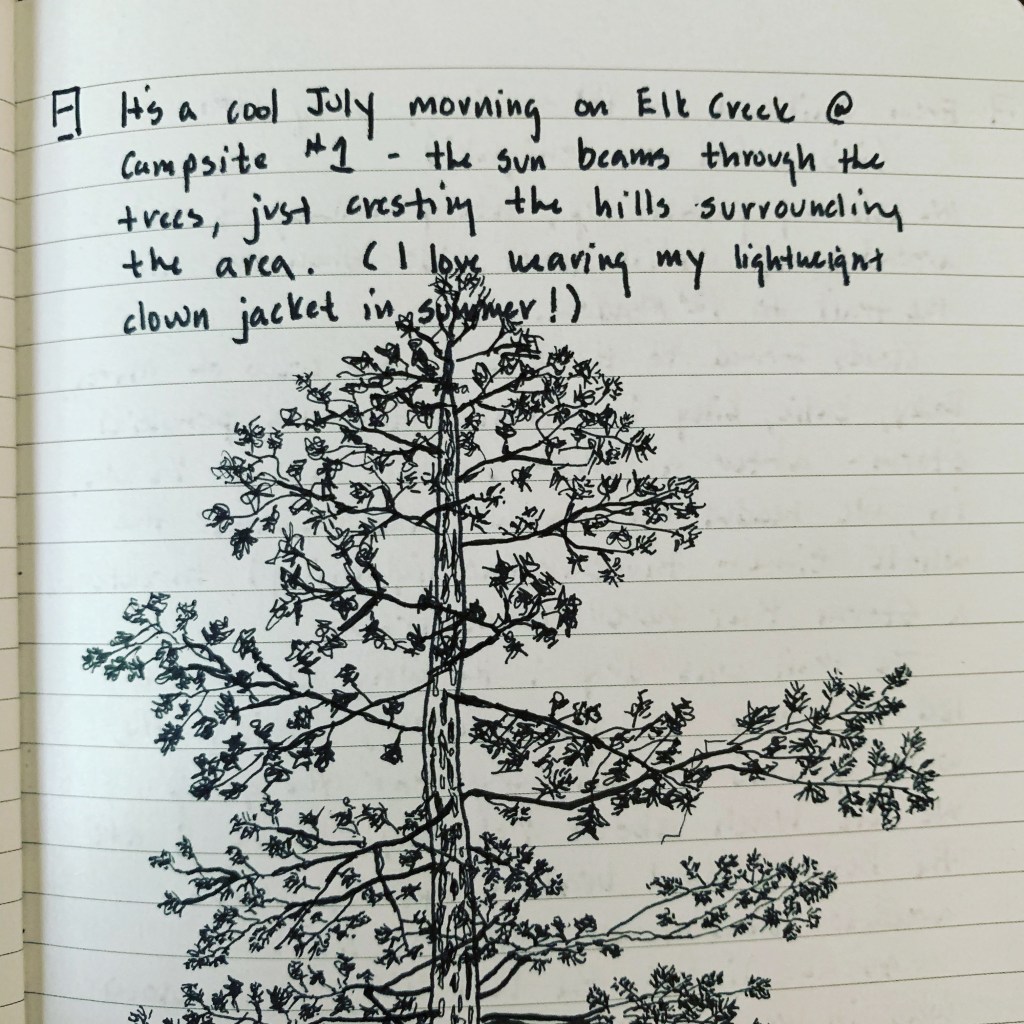 It's a cool July morning on Elk Creek @
Campsite #1 - the sun beams through the
trees, just cresting the hills surrounding
the area. (I love wearing my lightweight
clown jacket in summer!)